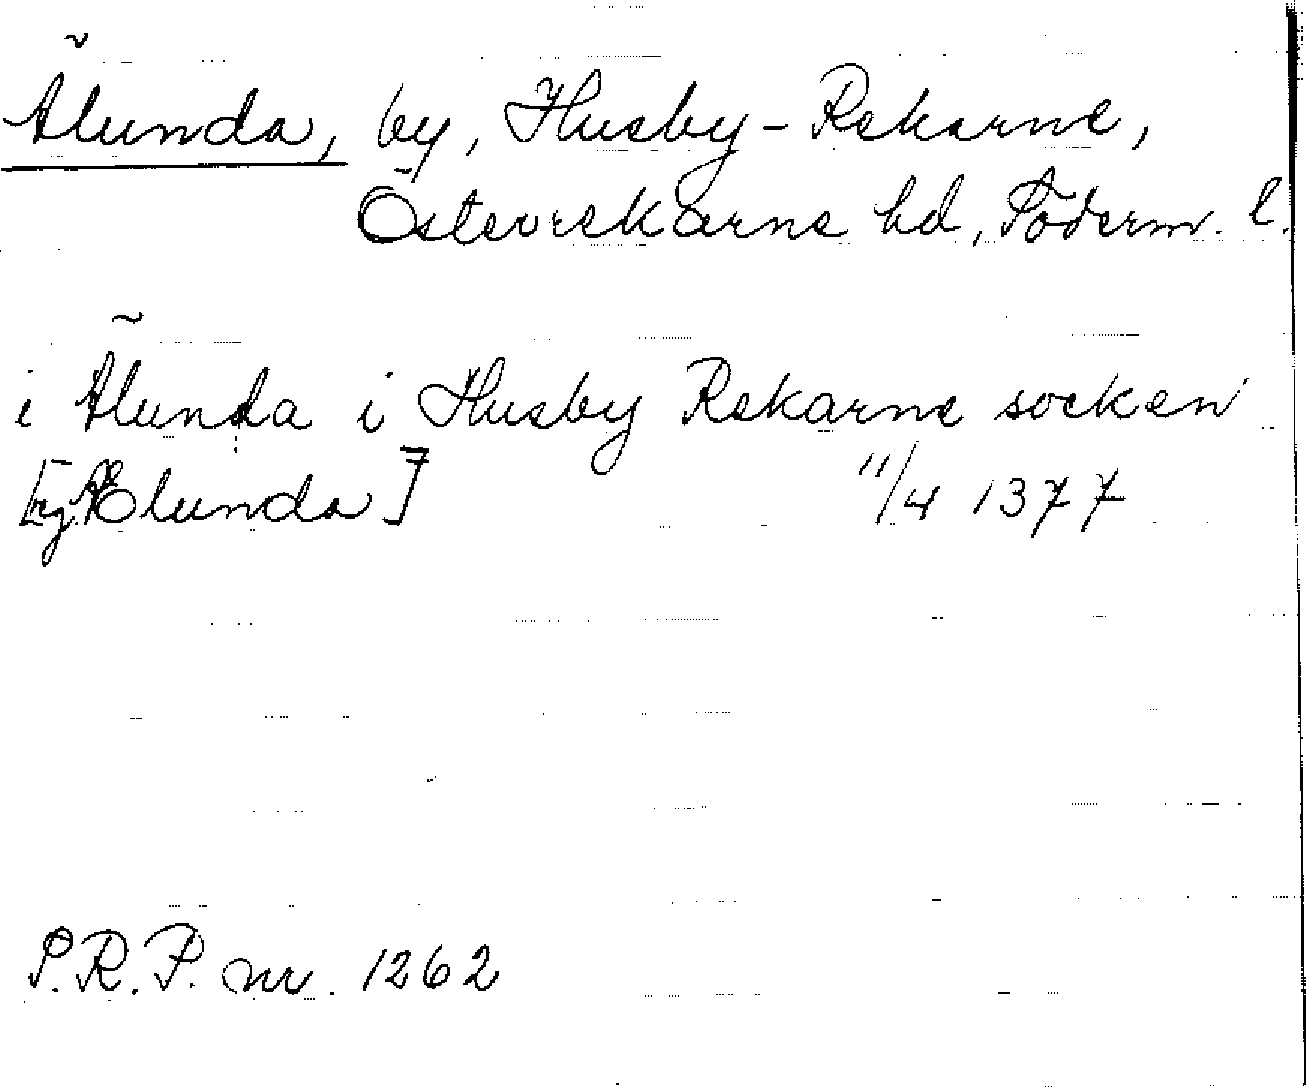 Älunda, by, Husby-Rekarne,
Österrekarne hd, Söderm. l.
i Älunda i Husby Rekarne socken
[ej Ælunda] 11/4 1377
S.R.P. nr. 1262